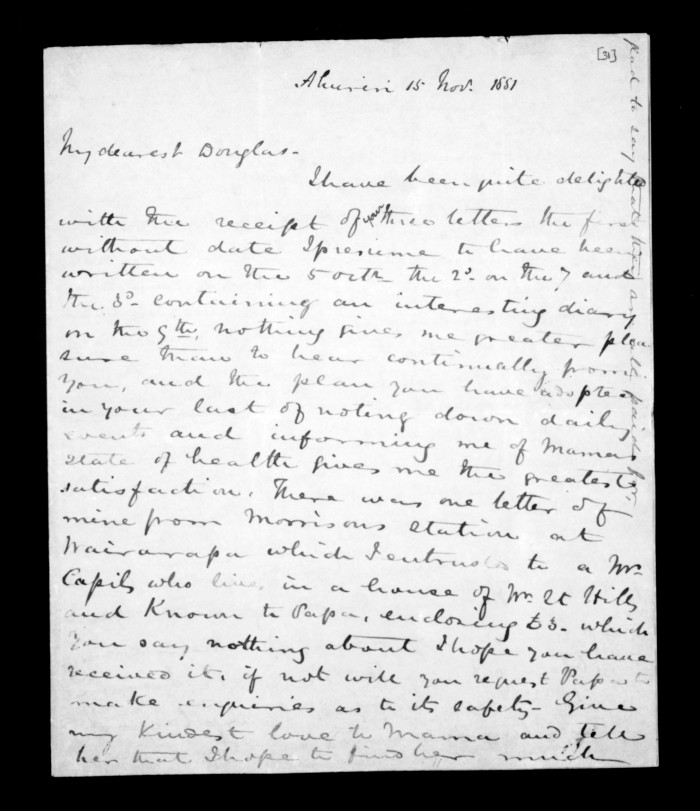 [31]
Ahuriri 15 Nov. 1851
My dearest Douglas -
I have been quite delighted
with the receipt of your three letters the first
without date I presume to have been
written on the 5 octb - the 2d. on the 7 and
the 3d. containing an interesting diary
on the 9th. nothing gives me greater plea
sure than to hear continually from
you, and the plan you have adopted
in your last of noting down daily
events and informing me of Mamas
state of health gives me the greatest
satisfaction. There was one letter of
mine from Morrisons station at
Wairarapa which I entrusted to a Mr.
Capils who lives in a house of Mr. St Hills
and Known to Papa, enclosing £3 - which
you say nothing about I hope you have
received it. if not will you request Papa to
make enquiries as to its safety - Give
my Kindest love to Mama and tell
her that I hope to find her much
to say that they are paid for.